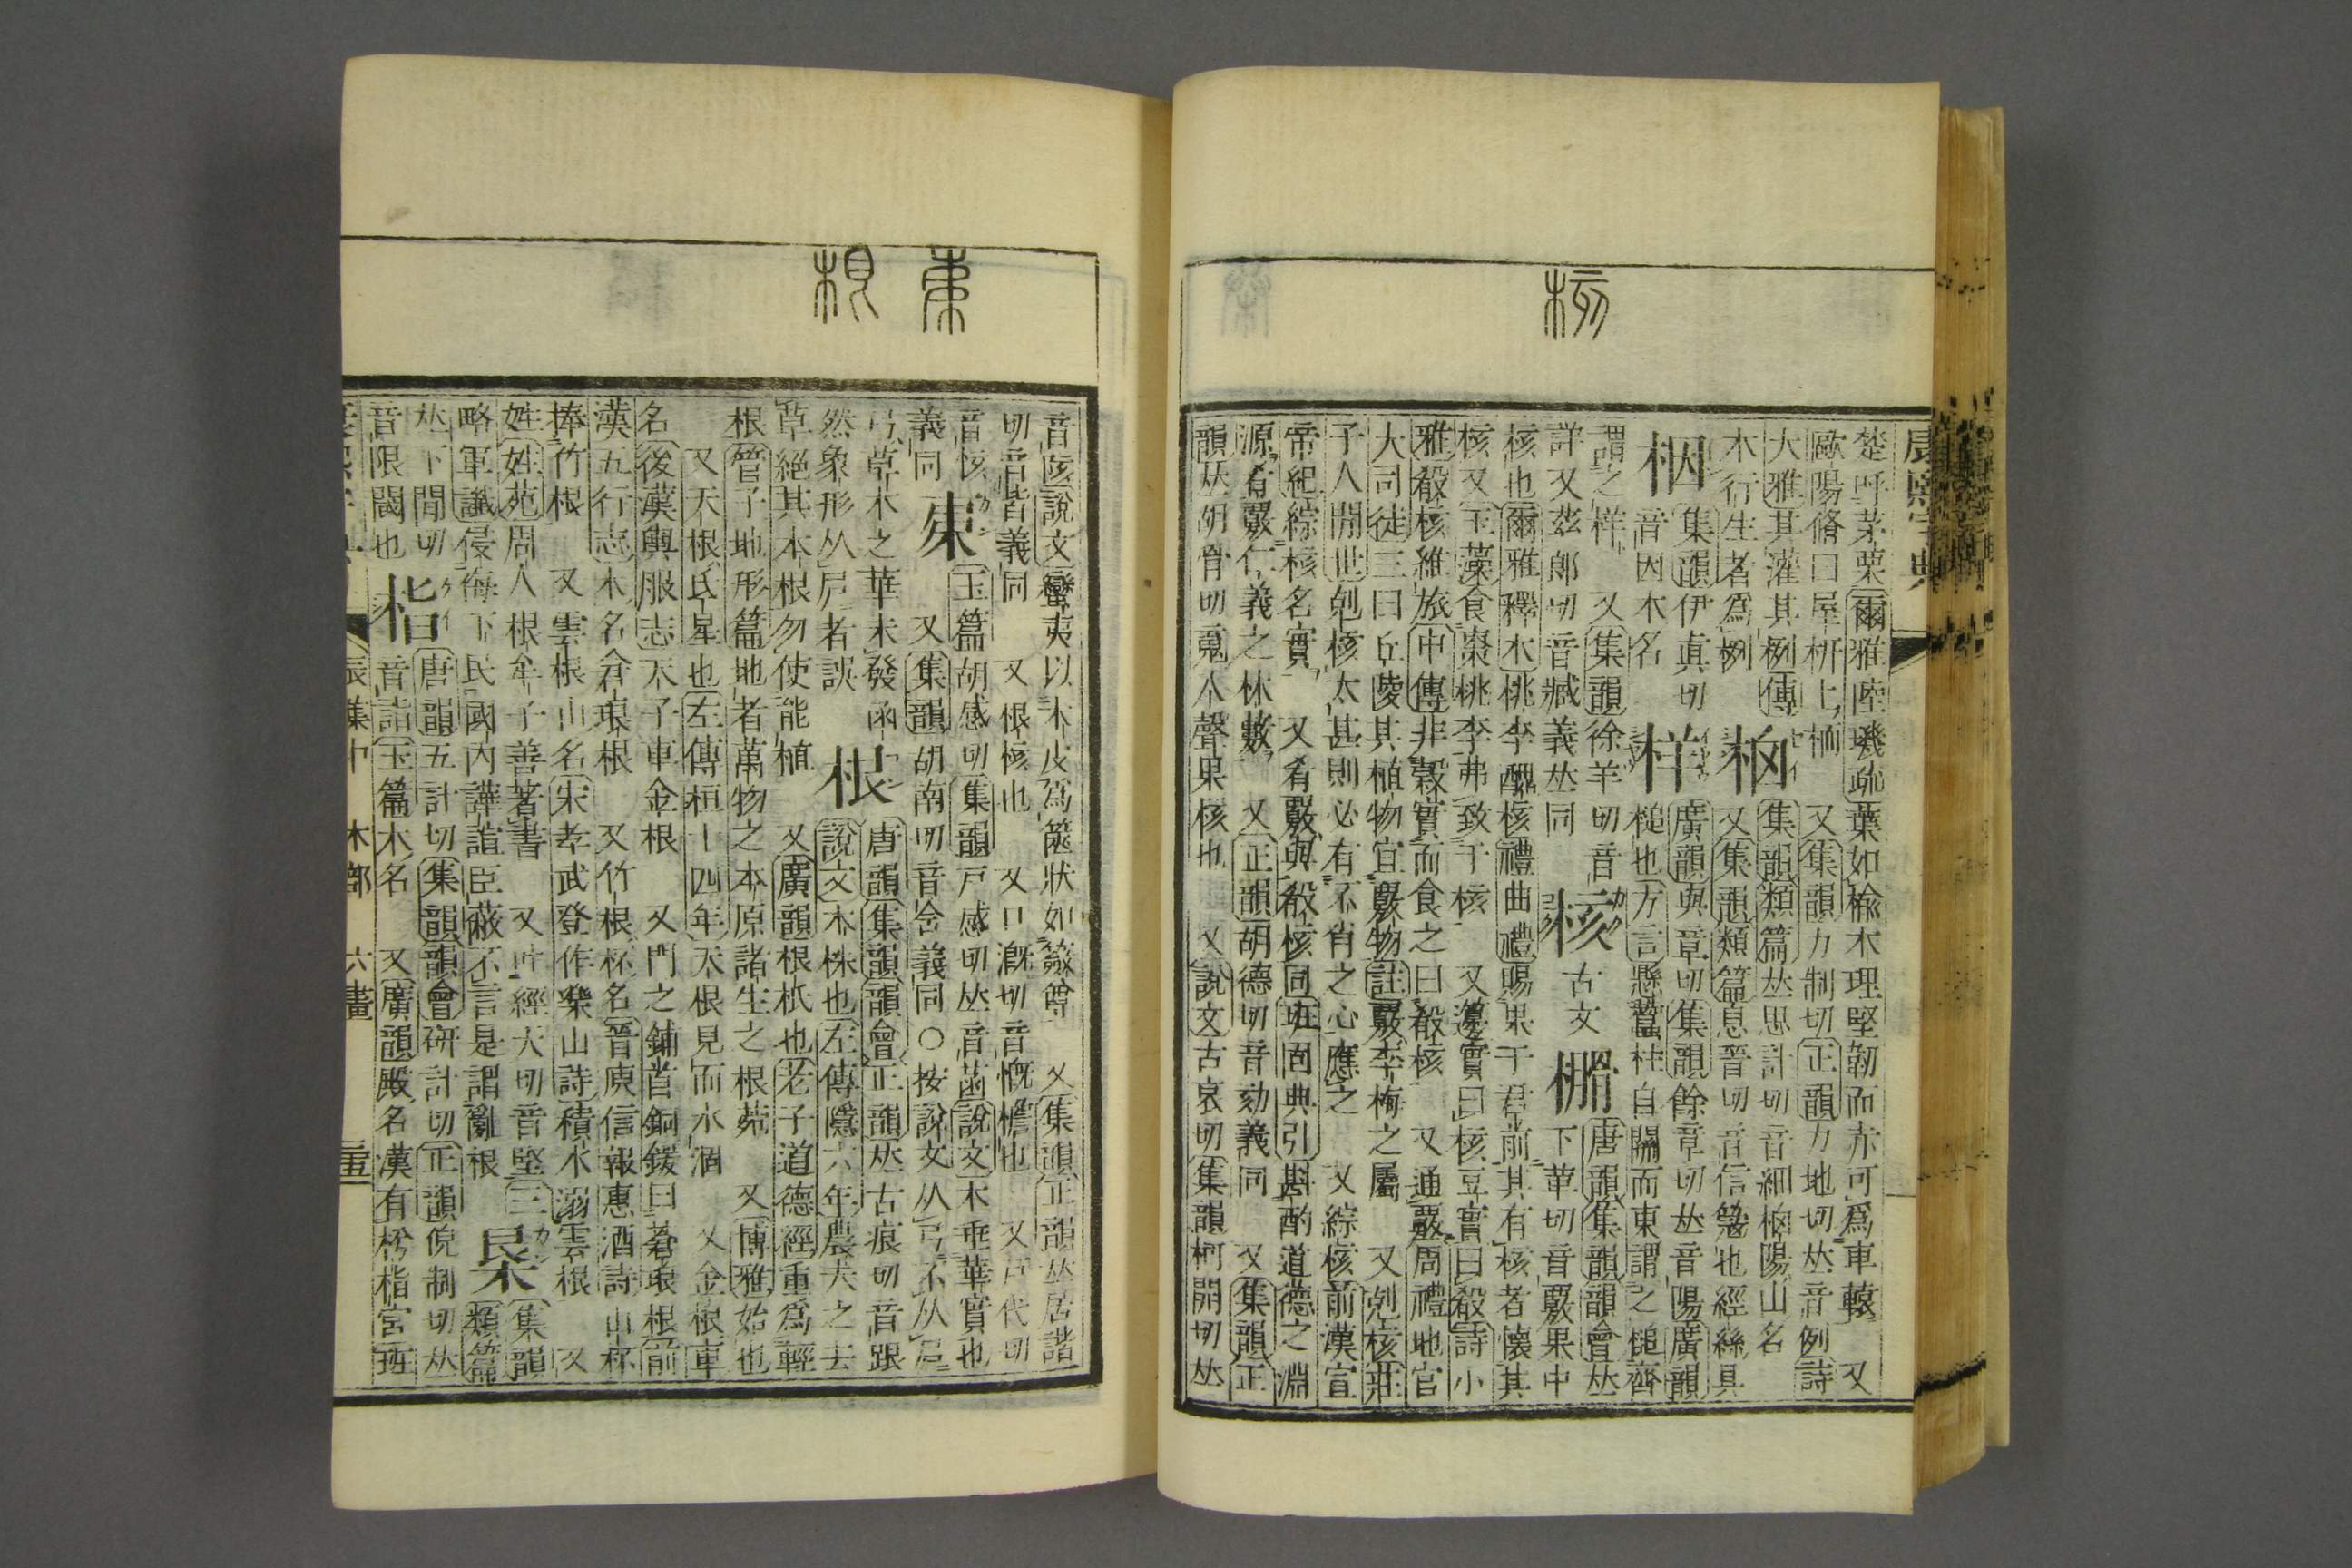 核
楚呼茅栗爾雅陸璣疏葉如楡木理堅韌而赤可爲車轅 又
歐陽脩曰屋枅上栭 又集韻力制切正韻力地切𠀤音例詩
大雅其灌其栵傳 集韻類篇𠀤思計切音細栖陽山名
木行生者爲栵 又集韻類篇息晉切音信
集韻伊眞切 廣韻與章切集韻餘章切𠀤音陽廣韻
栶 音因木名 样 槌也方言懸蠶柱自關而東謂之槌齊
謂之样 又集韻徐羊切音 唐韻集韻韻會𠀤
詳又茲郞切音臧義𠀤同 核 古文 下革切音覈果中
核也爾雅釋木桃李醜核禮曲禮賜果于君前其有核者懷其
核又玉藻食棗桃李弗致于核 又籩實曰核豆實曰殽詩小
雅殽核維旅中傳非穀實而食之曰殽核 又通覈周禮地官
大司徒三曰丘陵其植物宜覈物註覈李梅之屬 又剋核莊
子人閒世剋核太甚則必有不肖之心應之 又綜核前漢宣
帝紀綜核名實 又肴覈與殽核同班固典引斟酌道德之淵
源肴覈仁義之林藪 又正韻胡德切音劾義同 又集韻正
韻𠀤胡骨切䰟入聲果核也 又說文古哀切集韻柯開切𠀤
根
音陔說文蠻夷以木皮爲篋狀如籢尊 又集韻正韻𠀤居諧
切音皆義同 又根核也 又口漑切音慨檐也 又戸代切
音 玉篇胡感切集韻戸感切𠀤音菡說文木垂華實也
義同 㯥 又集韻胡南切音含義同○按說文从 不从
草木之華未發函 唐韻集韻韻會正韻𠀤古痕切音跟
然象形从 者誤 根 說文木株也左傳隱六年農夫之去
草絕其本根勿使能植 又廣韻根柢也老子道德經重爲輕
根管子地形篇地者萬物之本原諸生之根菀 又博雅始也
又天根氐星也左傳桓十四年天根見而水涸 又金根車
名後漢輿服志天子車金根 又門之鋪首銅鍰曰蒼琅根前
漢五行志木名倉琅根 又竹根杯名晉庾信報惠酒詩山杯
捧竹根 又雲根山名宋孝武登作樂山詩積水溺雲根 又
姓姓苑周人根牟子善著書 又叶經天切音堅三 集韻
略軍讖侵侮下民國內譁諠臣蔽不言是謂亂根 㮓 類篇
𠀤下閒切 唐韻五計切集韻韻會研計切正韻倪制切𠀤
音限閾也 栺 音詣玉篇木名 又廣韻殿名漢有枍栺宮班
辰集中 木部 六畫